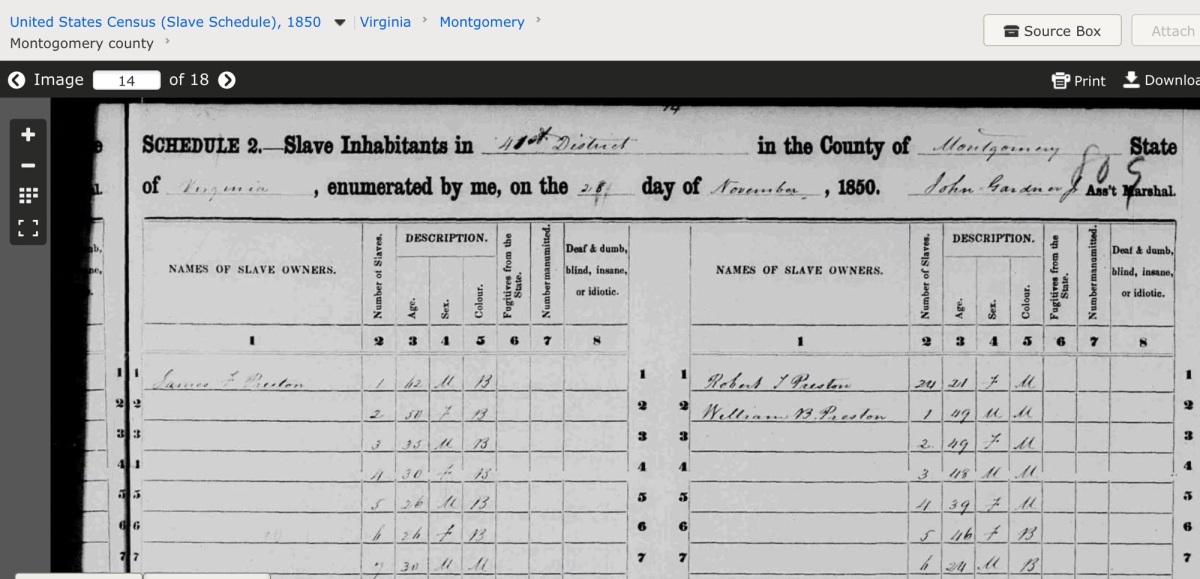 United States Census (Slave Schedule), 1850 Virginia Montgomery
Montogomery county
Source Box
Attach
Image 14 of 18
Print
Downloa
14
SCHEDULE 2.—Slave Inhabitants in 41st District in the County of Montgomery State
of Virginia, enumerated by me, on the 28 day of November, 1850. John Gardner Ass't Marshal.
805
NAMES OF SLAVE OWNERS. Number of Slaves. DESCRIPTION. Age. Sex. Colour. Fugitives from the State. Number manumitted. Deaf & dumb, blind, insane, or idiotic.
NAMES OF SLAVE OWNERS. Number of Slaves. DESCRIPTION. Age. Sex. Colour. Fugitives from the State. Number manumitted. Deaf & dumb, blind, insane, or idiotic.
1 2 3 4 5 6 7 8 1 2 3 4 5 6 7 8
1 1 James F Preston 1 62 M B 1 1 Robert T Preston 24 21 F M 1
2 2 2 50 F B 2 2 William B. Preston 1 49 M M 2
3 3 3 35 M B 3 3 2 49 F M 3
4 4 4 30 F B 4 4 3 48 M M 4
5 5 5 26 M B 5 5 4 39 F M 5
6 6 6 26 F B 6 6 5 46 F B 6
7 7 7 30 M M 7 7 6 24 M B 7